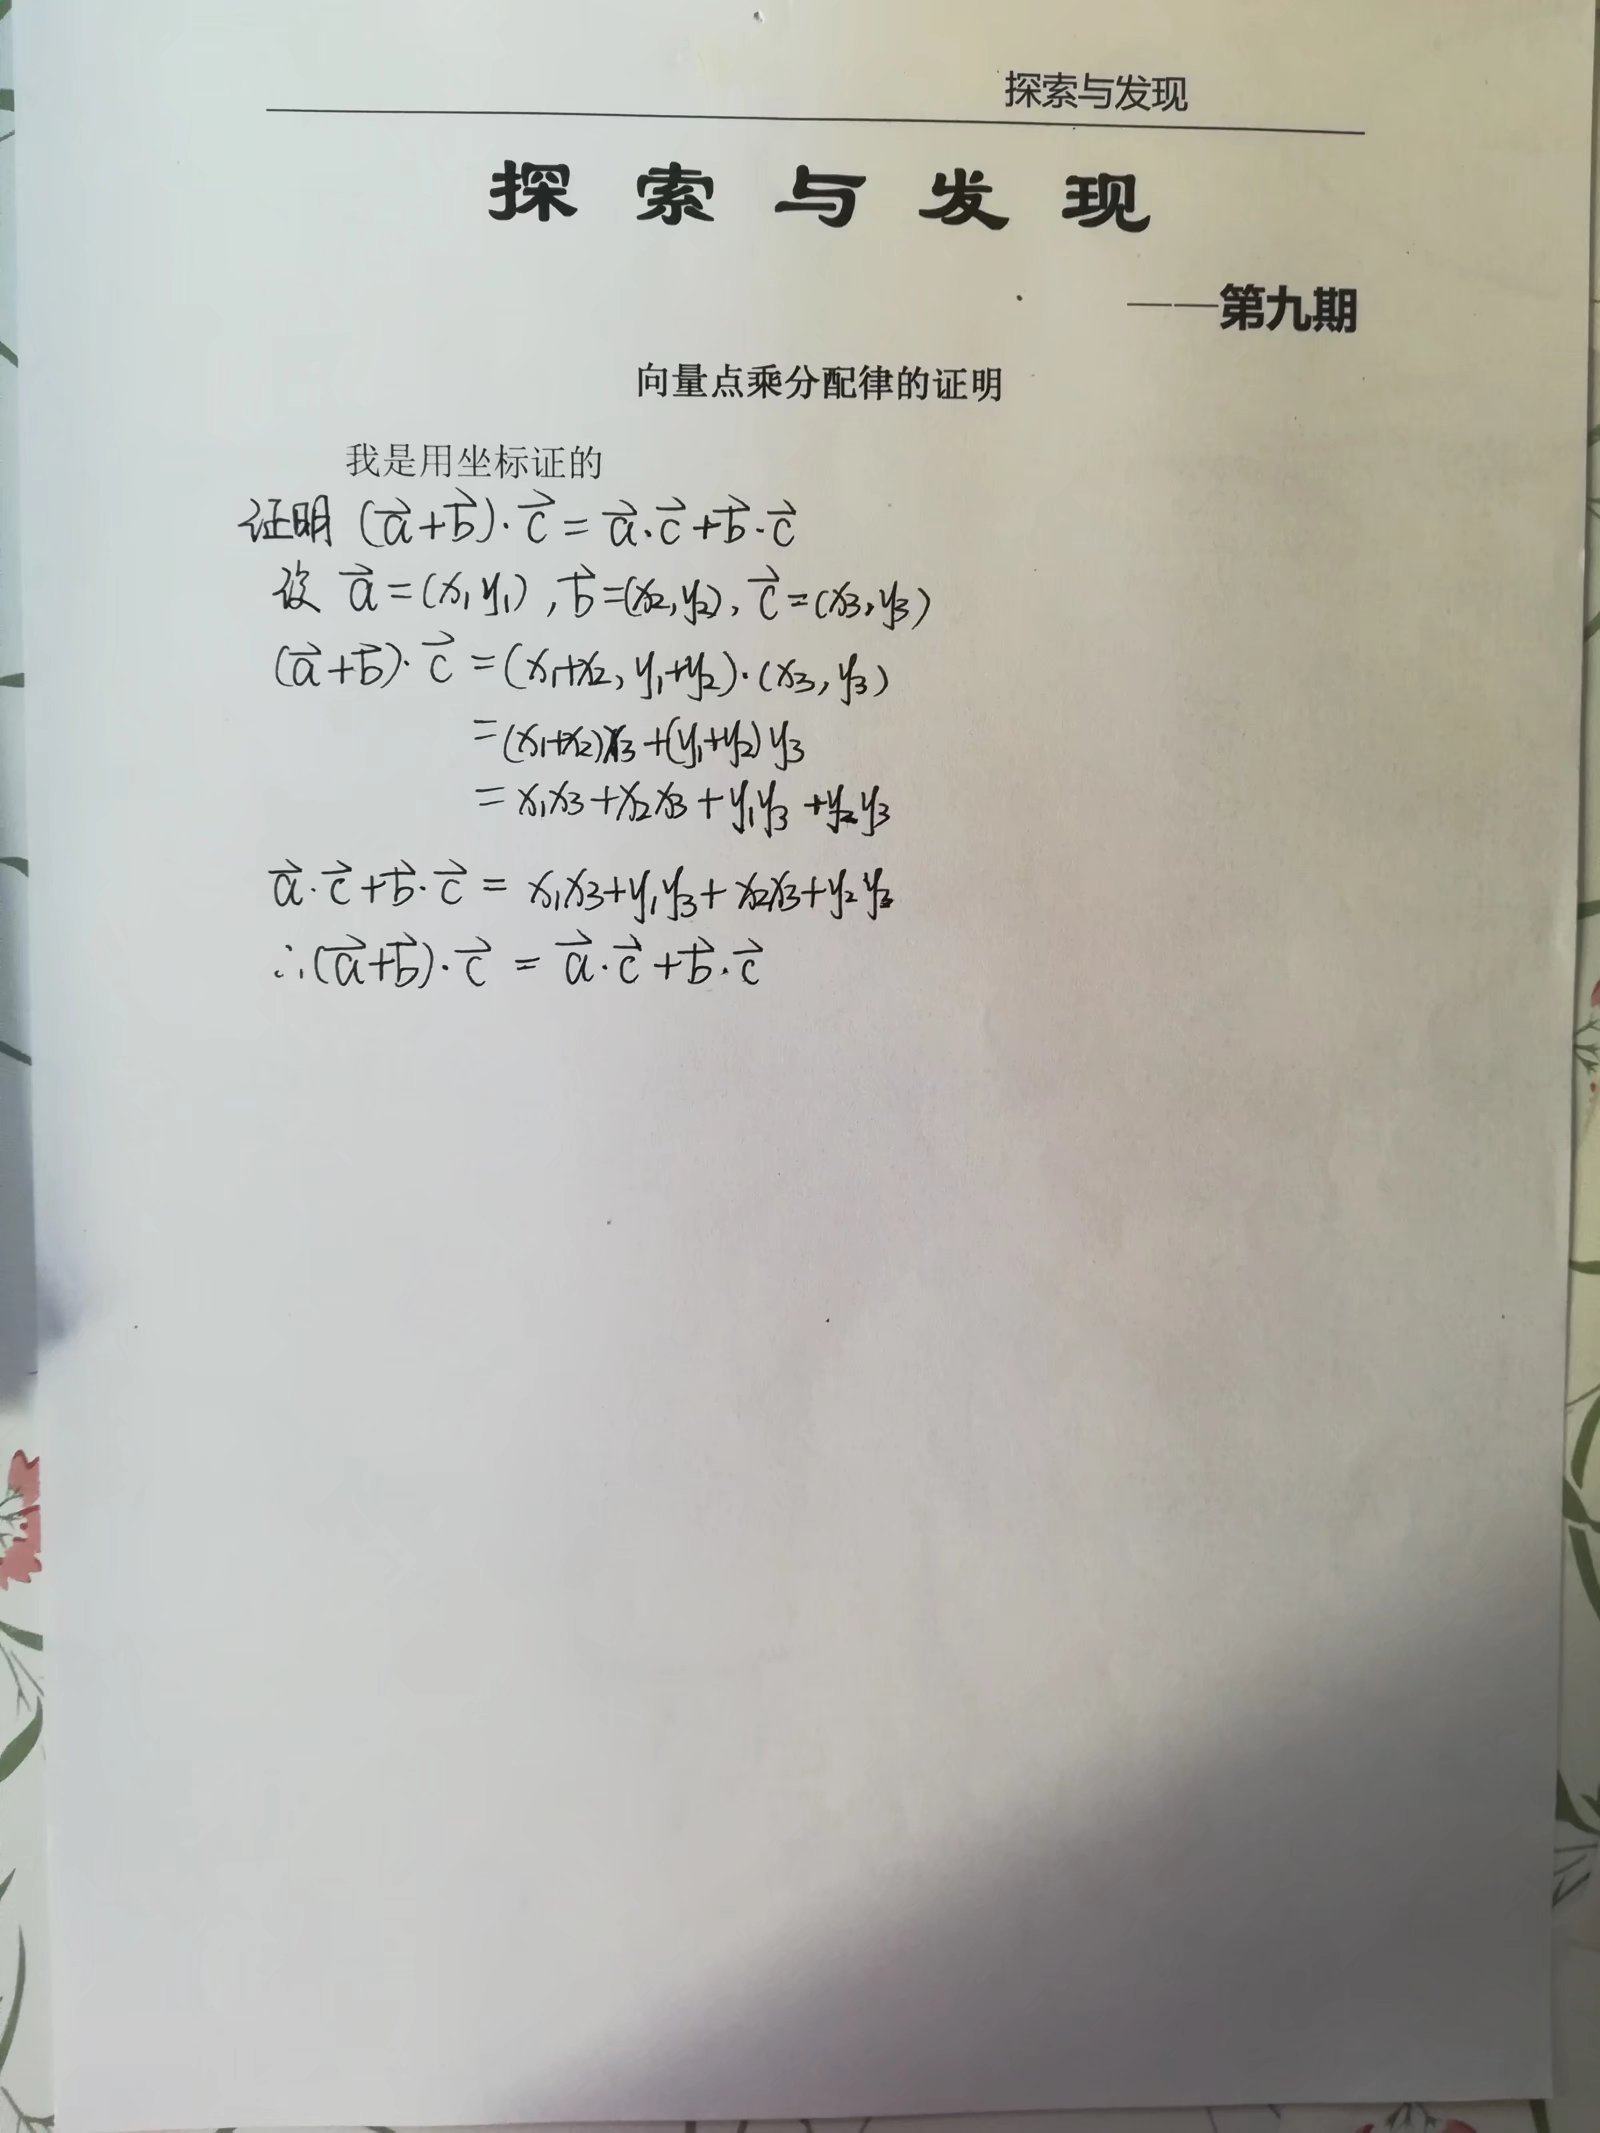 探索与发现
探索与发现
——第九期
向量点乘分配律的证明
我是用坐标证的
证明 (a⃗+b⃗)·c⃗ = a⃗·c⃗+b⃗·c⃗
设 a⃗=(x₁,y₁),b⃗=(x₂,y₂),c⃗=(x₃,y₃)
(a⃗+b⃗)·c⃗ =(x₁+x₂,y₁+y₂)·(x₃,y₃)
=(x₁+x₂)x₃+(y₁+y₂)y₃
= x₁x₃+x₂x₃+y₁y₃+y₂y₃
a⃗·c⃗+b⃗·c⃗ = x₁x₃+y₁y₃+x₂x₃+y₂y₃
∴(a⃗+b⃗)·c⃗ = a⃗·c⃗+b⃗·c⃗